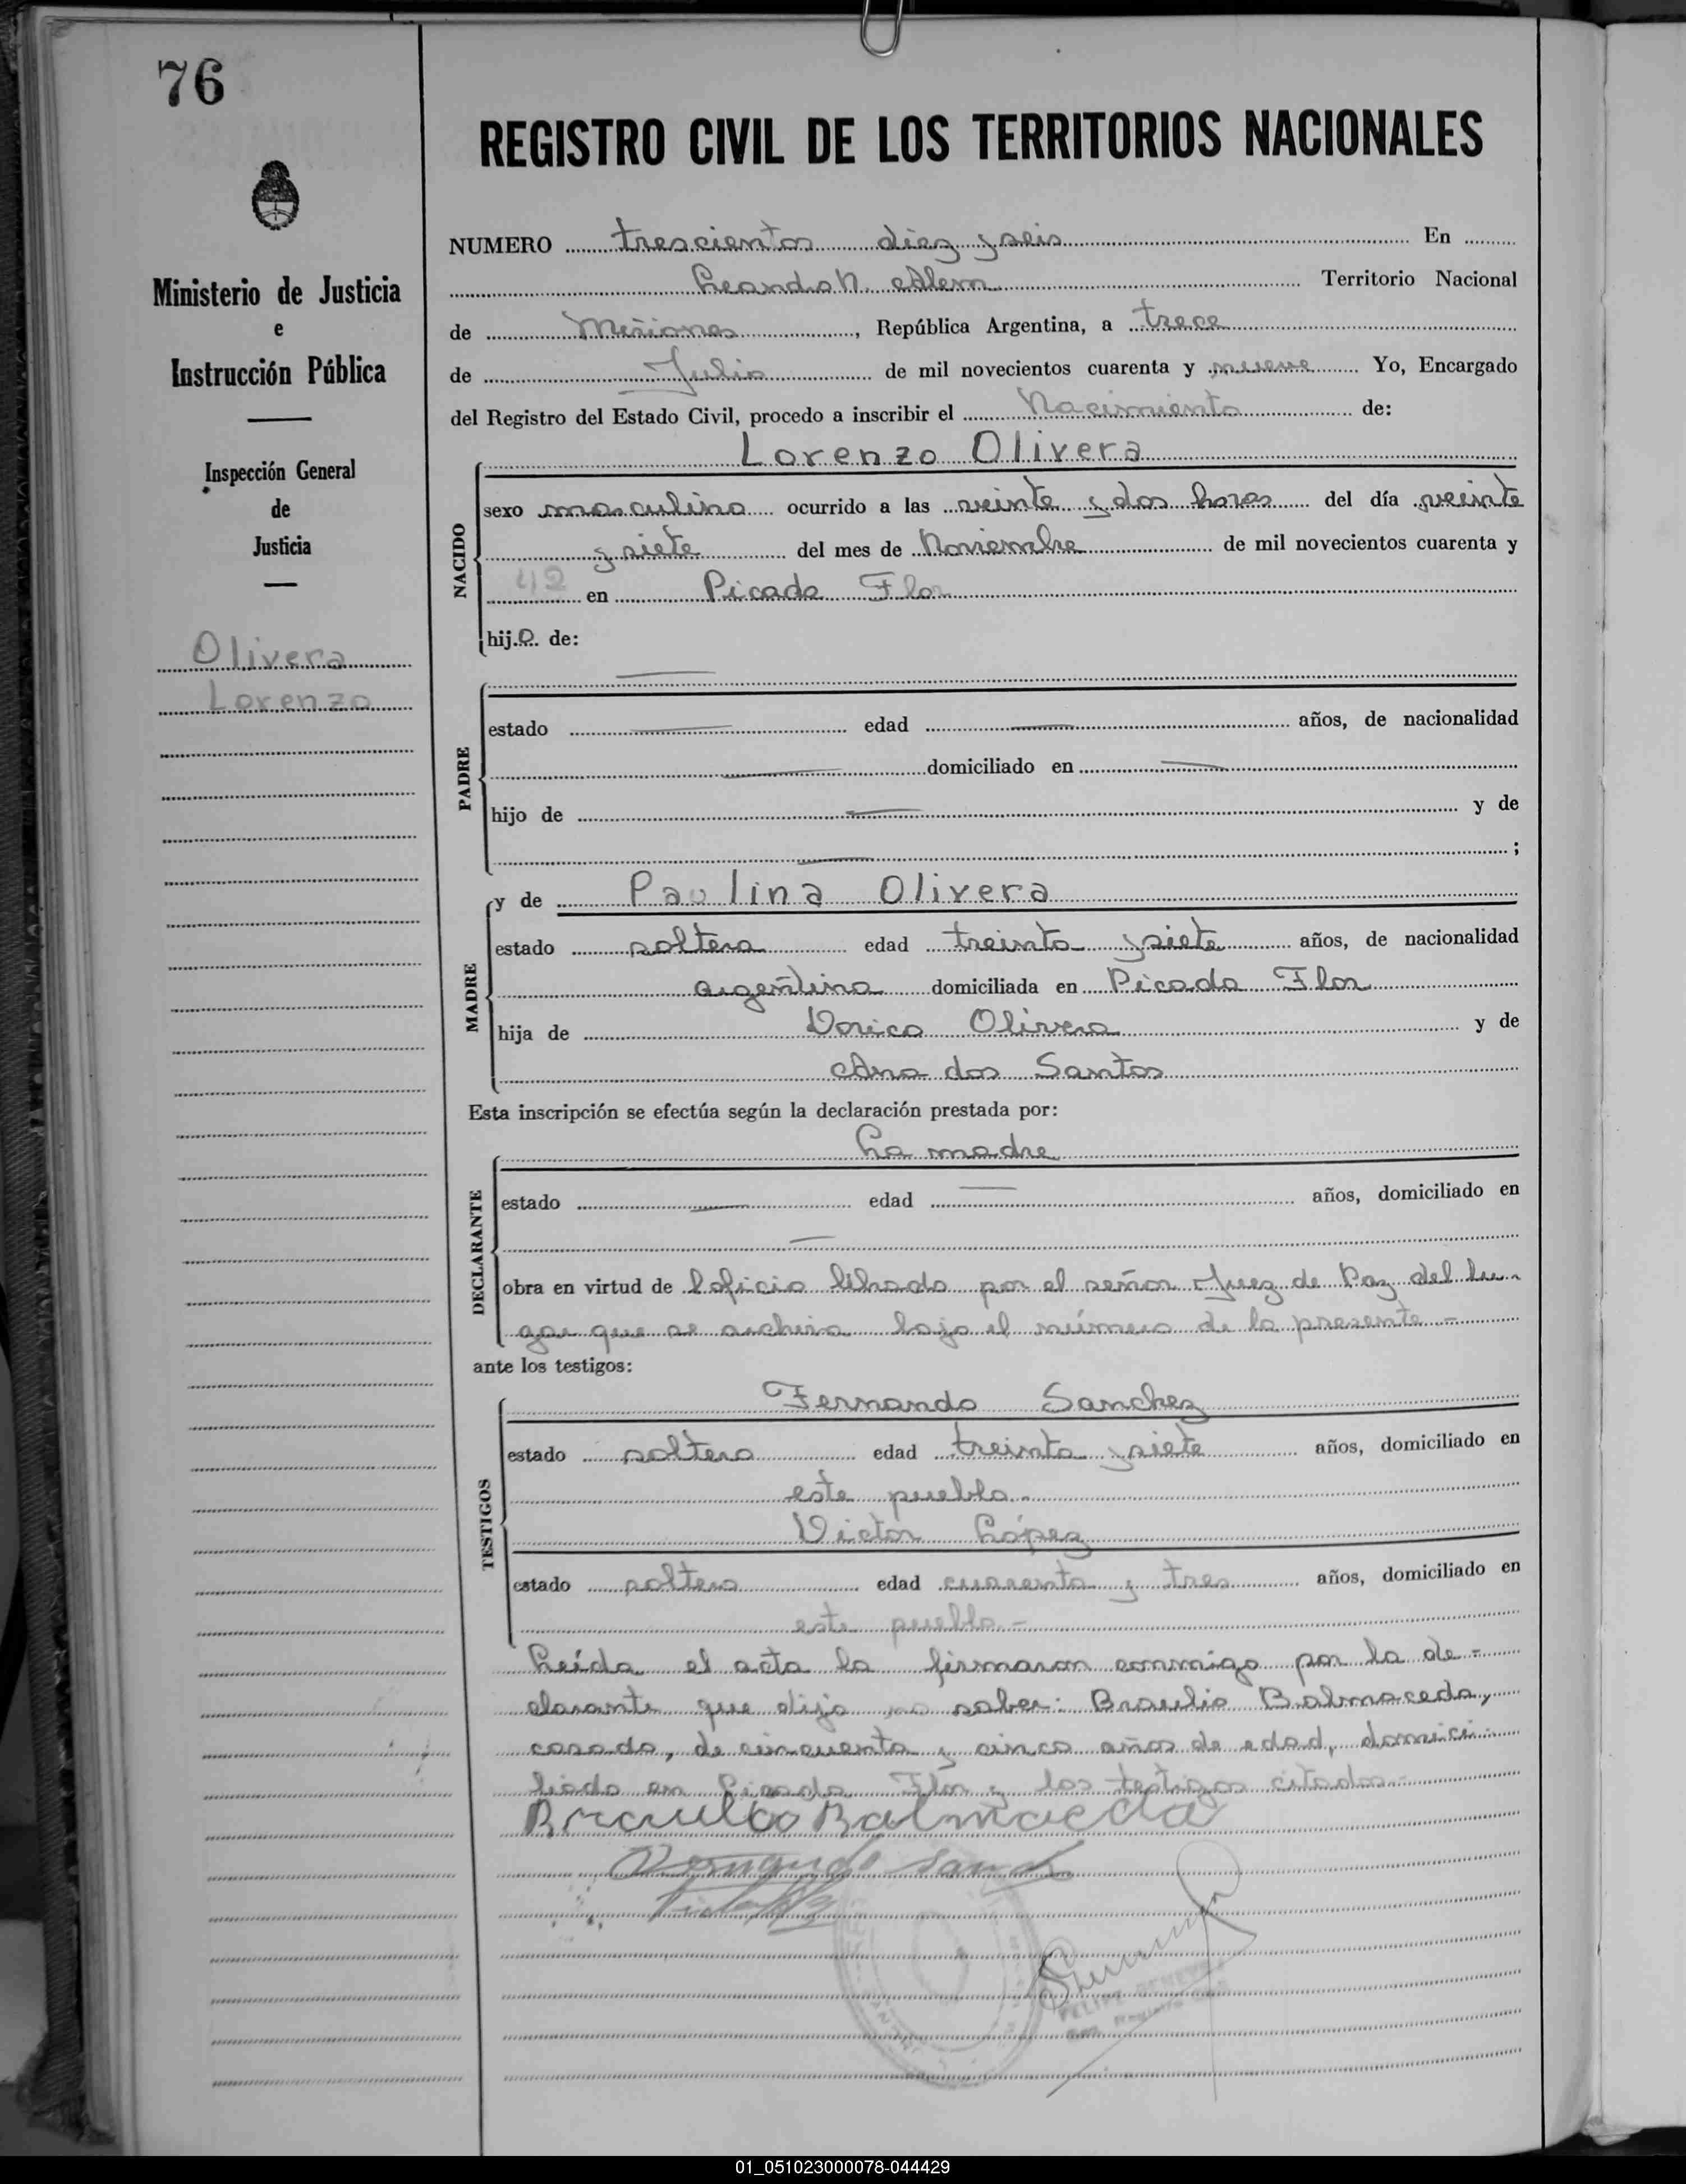 76
REGISTRO CIVIL DE LOS TERRITORIOS NACIONALES
Ministerio de Justicia
e
Instrucción Pública
Inspección General
de
Justicia
Olivera
Lorenzo
NUMERO trescientos diez y seis En
Leandro N. Alem Territorio Nacional
de Misiones, República Argentina, a trece
de Julio de mil novecientos cuarenta y nueve Yo, Encargado
del Registro del Estado Civil, procedo a inscribir el Nacimiento de:
Lorenzo Olivera
NACIDO
sexo masculino ocurrido a las veinte y dos horas del día veinte
y siete del mes de Noviembre de mil novecientos cuarenta y
42 en Picada Flor
hijo de:
PADRE
estado edad años, de nacionalidad
domiciliado en
hijo de y de
;
MADRE
y de Paulina Olivera
estado soltera edad treinta y siete años, de nacionalidad
argentina domiciliada en Picada Flor
hija de Olivera y de
Ana dos Santos
Esta inscripción se efectúa según la declaración prestada por:
La madre
DECLARANTE
estado edad años, domiciliado en
obra en virtud de oficio librado por el señor Juez de Paz del lu-
gar que se archiva bajo el número de la presente -
ante los testigos:
TESTIGOS
Fernando Sanchez
estado soltero edad treinta y siete años, domiciliado en
este pueblo.-
Victor López
estado soltero edad cuarenta y tres años, domiciliado en
este pueblo.-
Leída el acta la firmaron conmigo por la de-
clarante que dijo no saber: Braulio Balmaceda,
casado, de cincuenta y cinco años de edad, domici-
liado en Picada Flor y los testigos citados.-
Braulio Balmaceda
01_051023000078-044429